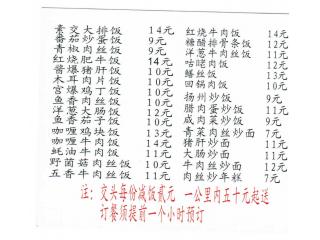 素交大排饭 14元
番茄炒蛋饭 9元
青椒肉丝饭 9元
红烧肥牛饭 14元
酱爆猪肝饭 10元
木耳肉片饭 10元
宫爆鸡丁饭 10元
鱼香肉丝饭 10元
洋葱大肠饭 12元
鱼香茄子饭 10元
咖喱鸡块饭 13元
咖喱牛肉饭 14元
蚝油牛肉饭 11元
野菌菇肉丝饭 11元
五香牛肉丝饭
红烧牛肉饭 14元
糖醋排骨条饭 12元
洋葱牛肉丝饭 11元
咕咾肉饭 12元
鳝丝饭 13元
回锅肉饭 10元
扬州炒饭 9元
腊肉蛋炒饭 11元
咸肉菜炒饭 9元
青菜肉丝炒面 7元
猪肝炒面 11元
大肠炒面 11元
肉丝炒面 9元
肉丝炒年糕 7元
注：交头每份减饭贰元 一公里内五十元起送
订餐须提前一个小时预订